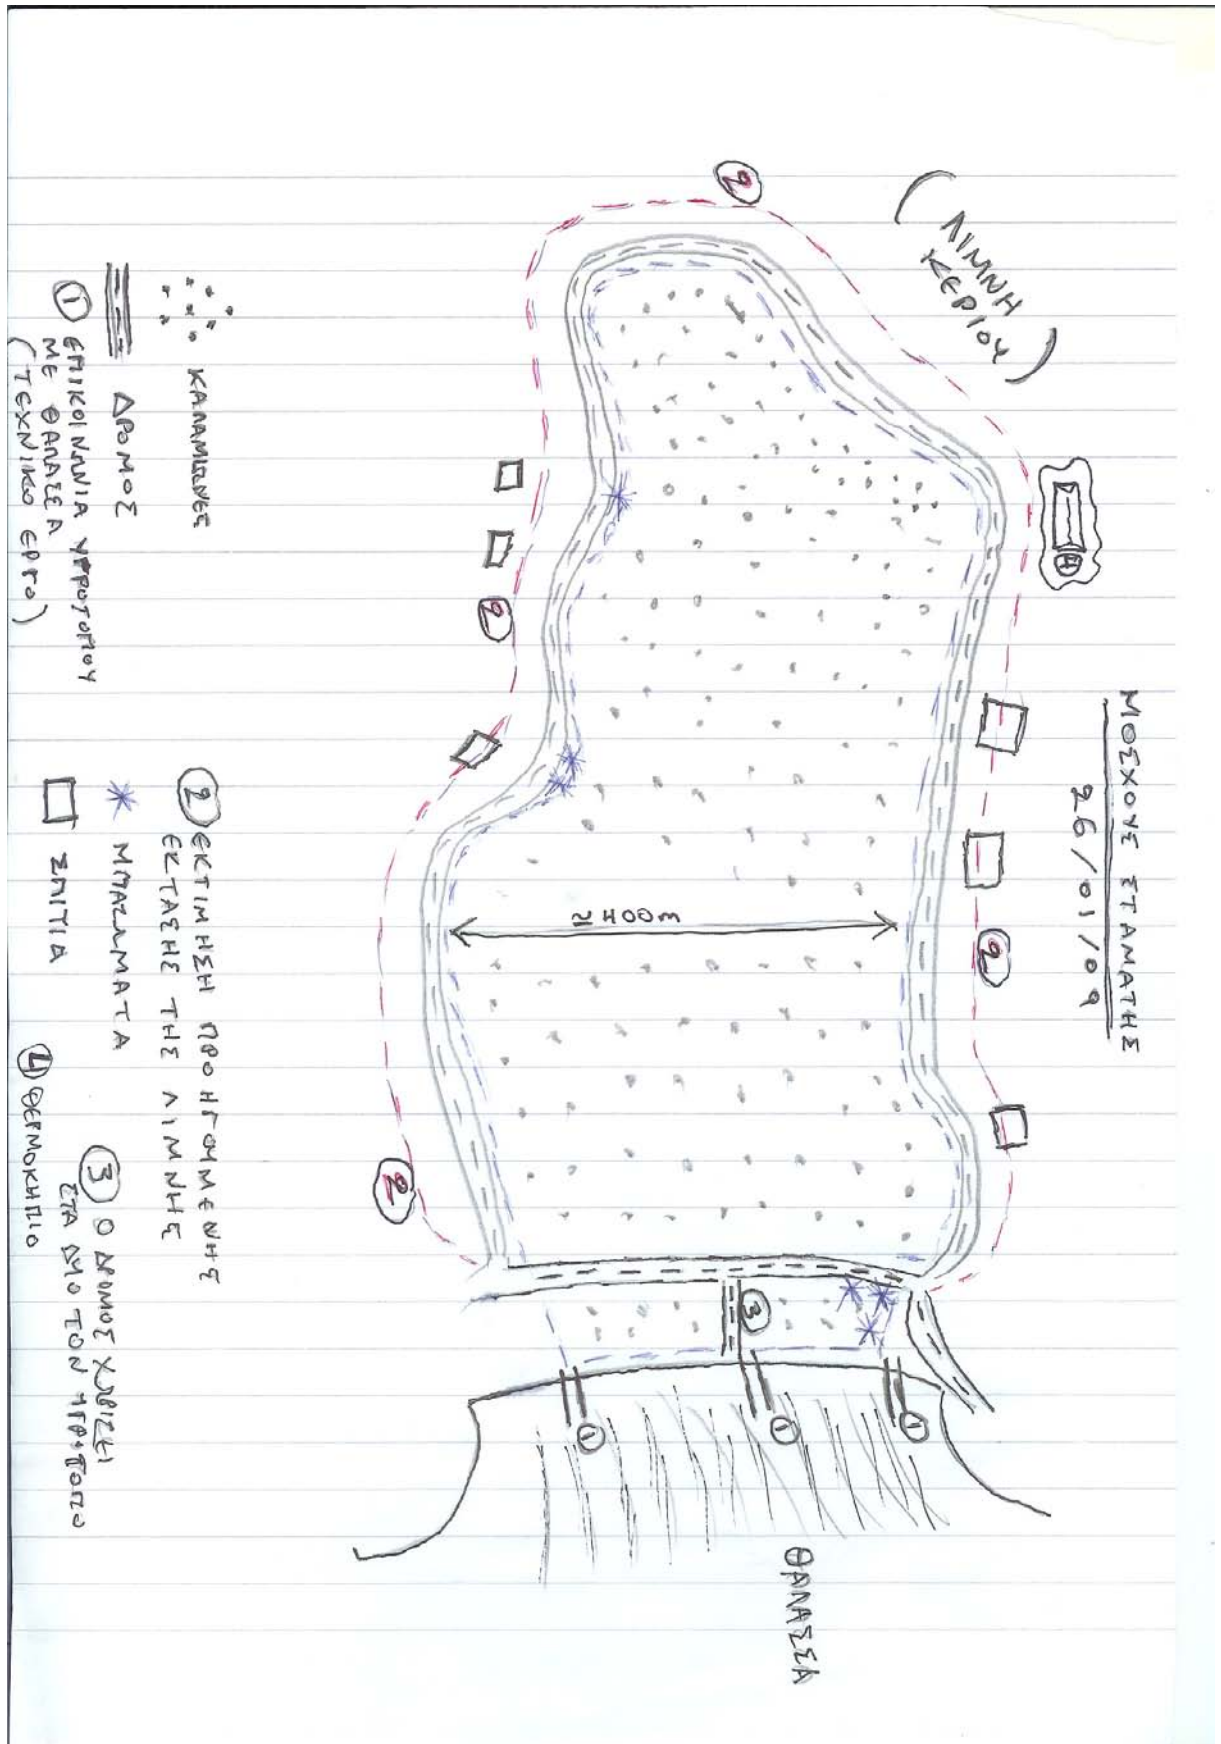 ΜΟΣΧΟΥΣ ΣΤΑΜΑΤΗΣ
26/01/09
(ΛΙΜΝΗ
ΚΕΡΙΟΥ)
4
2
2
≈400m
2
2
2
3
1
1
1
ΘΑΛΑΣΣΑ
ΚΑΛΑΜΩΝΕΣ
ΔΡΟΜΟΣ
1 ΕΠΙΚΟΙΝΩΝΙΑ ΥΓΡΟΤΟΠΟΥ
ΜΕ ΘΑΛΑΣΣΑ
(ΤΕΧΝΙΚΟ ΕΡΓΟ)
2 ΕΚΤΙΜΗΣΗ ΠΡΟΗΓΟΥΜΕΝΗΣ
ΕΚΤΑΣΗΣ ΤΗΣ ΛΙΜΝΗΣ
ΜΠΑΖΩΜΑΤΑ
ΣΠΙΤΙΑ
3 Ο ΔΡΟΜΟΣ ΧΩΡΙΖΕΙ
ΣΤΑ ΔΥΟ ΤΟΝ ΥΓΡΟΤΟΠΟ
4 ΘΕΡΜΟΚΗΠΙΟ